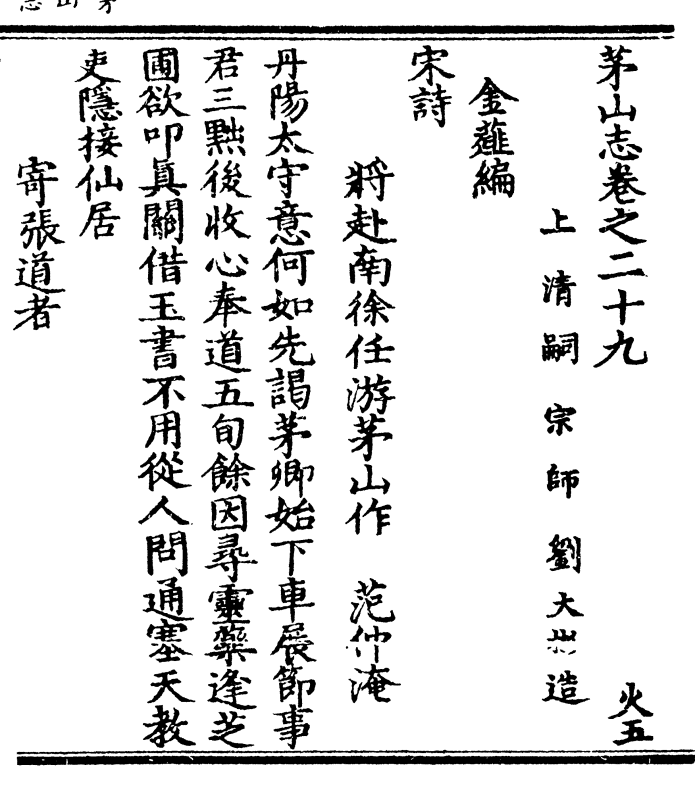 茅山志卷之二十九 火五
上清嗣宗師劉大彬造
金薤編
宋詩
將赴南徐任游茅山作 范仲淹
丹陽太守意何如先謁茅卿始下車展節事
君三黜後收心奉道五旬餘因尋靈藥逢芝
圃欲叩眞關借玉書不用從人問通塞天教
吏隱接仙居
寄張道者